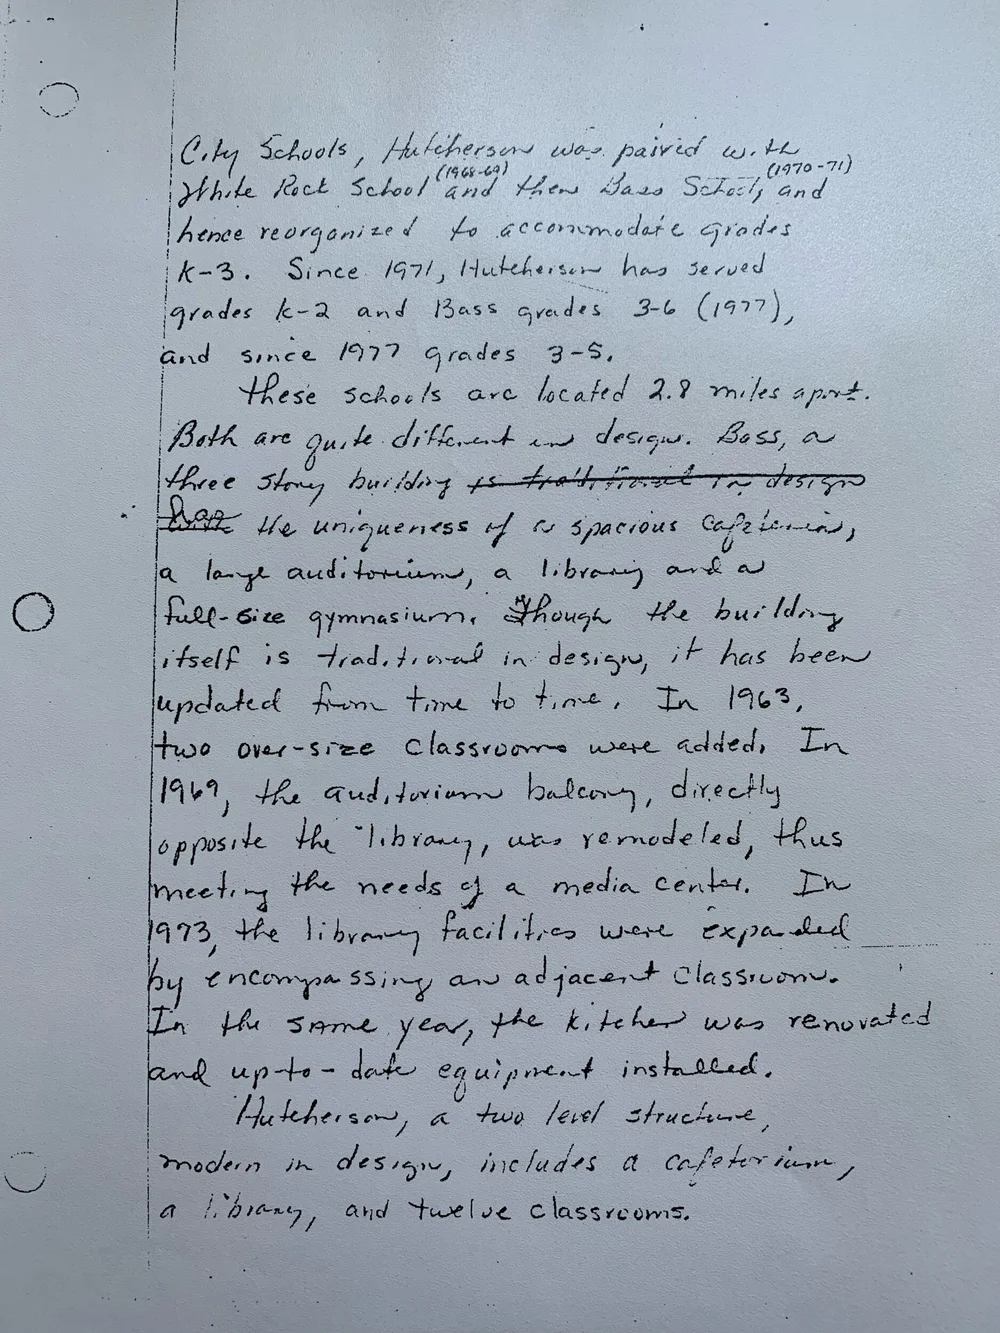 City Schools, Hutcherson was paired with
(1968-69) (1970-71)
White Rock School and then Bass School, and
hence reorganized to accommodate grades
K-3. Since 1971, Hutcherson has served
grades K-2 and Bass grades 3-6 (1977),
and since 1977 grades 3-5.
These schools are located 2.8 miles apart.
Both are quite different in design. Bass, a
three story building is traditional in design
has
with the uniqueness of a spacious cafeteria,
a large auditorium, a library and a
full-size gymnasium. Though the building
itself is traditional in design, it has been
updated from time to time. In 1963,
two over-size classrooms were added. In
1969, the auditorium balcony, directly
opposite the library, was remodeled, thus
meeting the needs of a media center. In
1973, the library facilities were expanded
by encompassing an adjacent classroom.
In the same year, the kitchen was renovated
and up-to-date equipment installed.
Hutcherson, a two level structure,
modern in design, includes a cafetorium,
a library, and twelve classrooms.